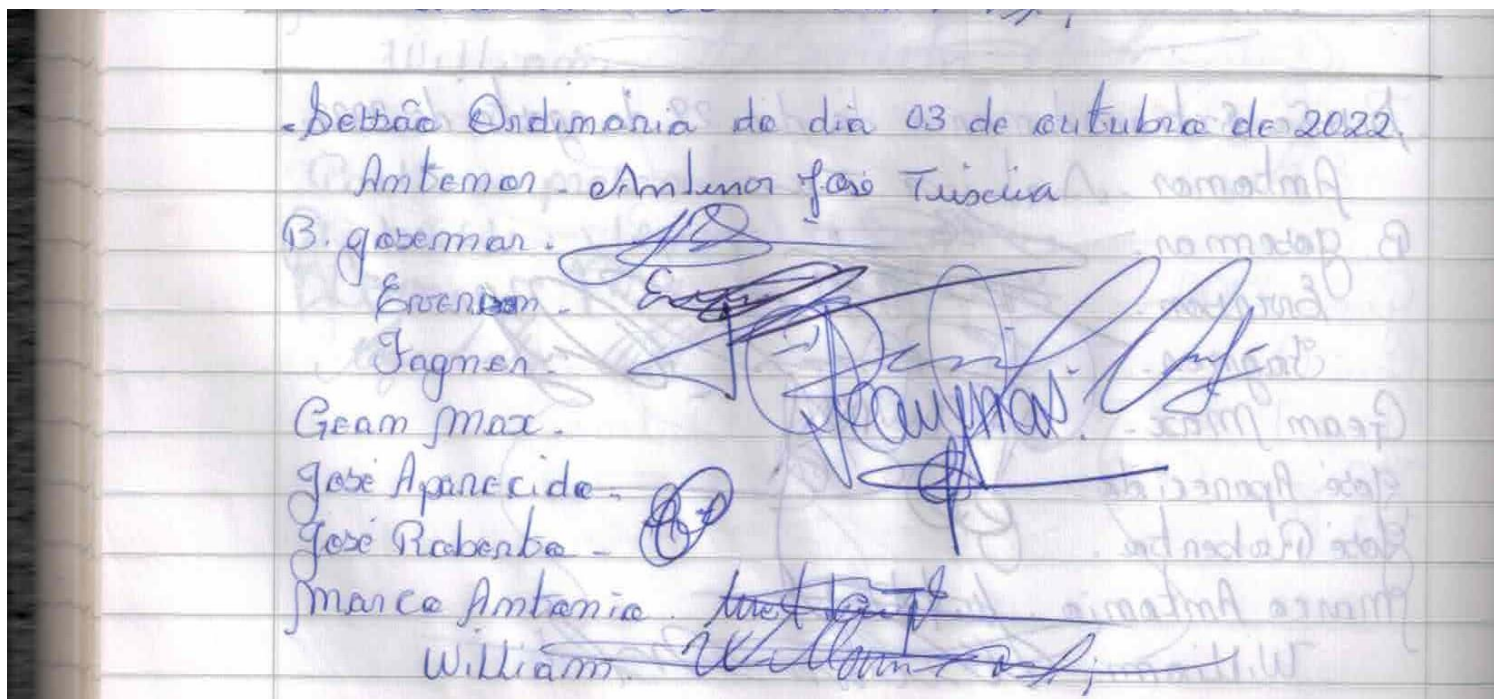 Sessão Ordinária do dia 03 de outubro de 2022.
Antenor - Antenor José Teixeira
B. Josemar.
Everson -
Fagner -
Gean Max.
José Aparecido -
José Roberto -
Marco Antonio.
William.